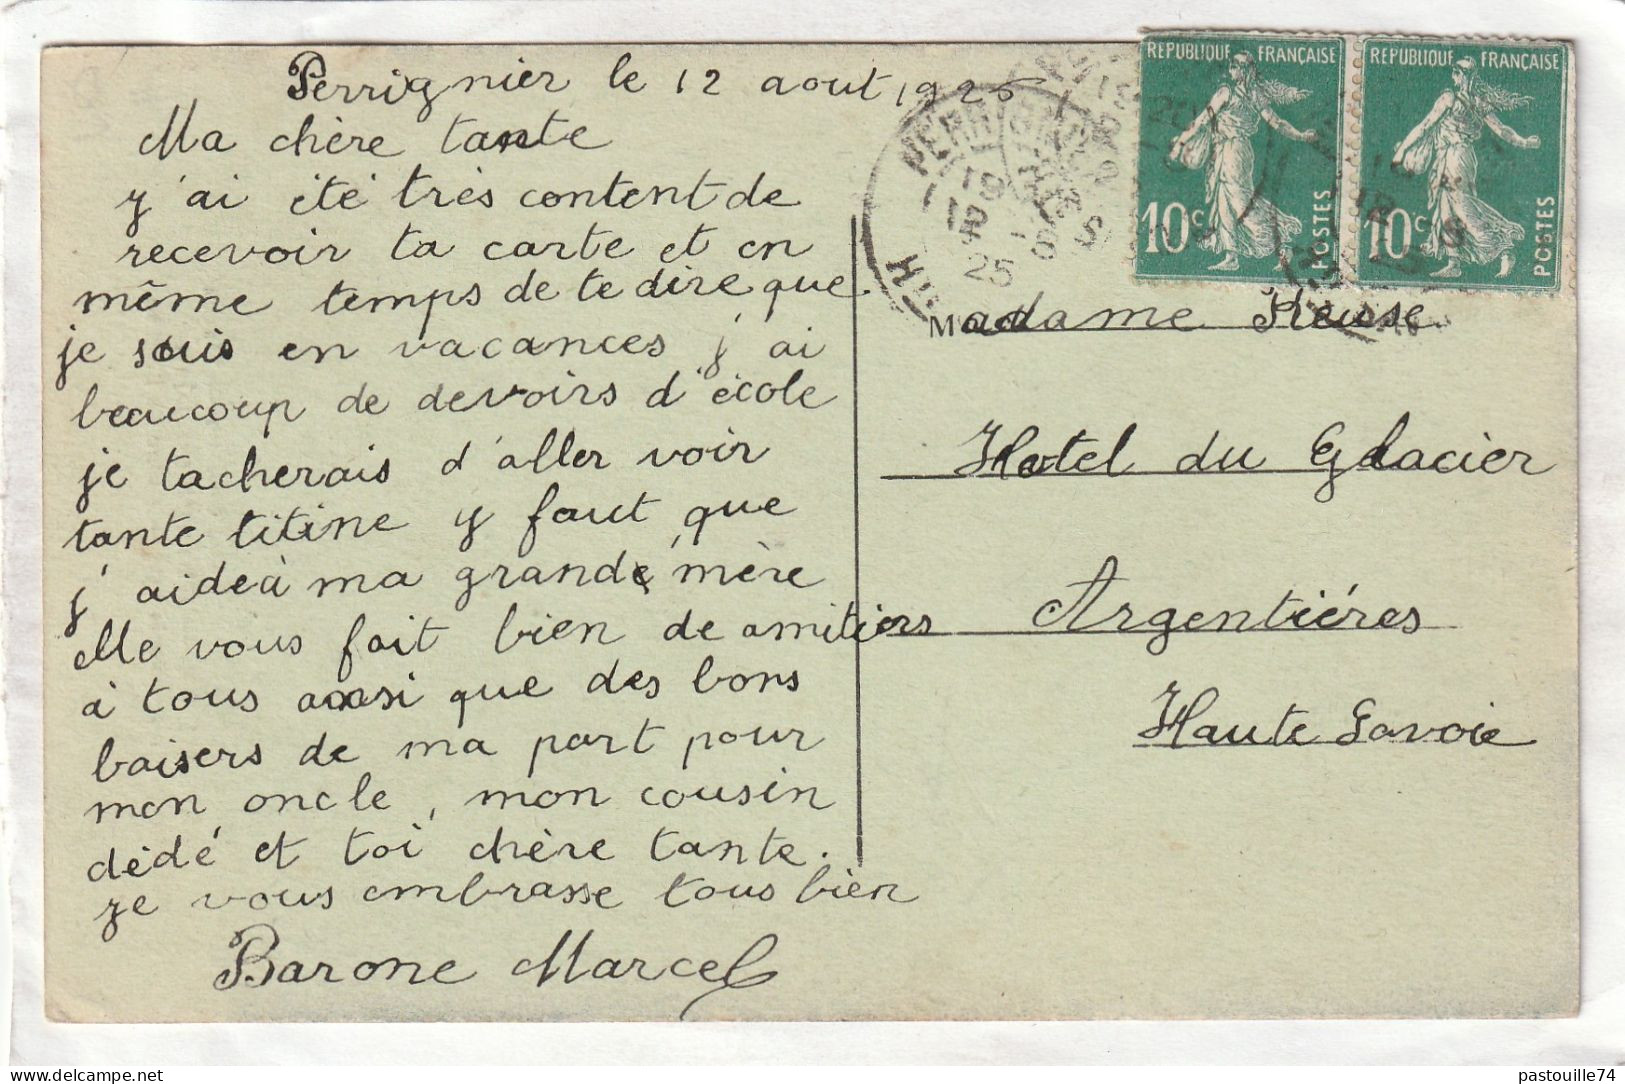 Perrignier le 12 aout 1925
Ma chère tante
y'ai été très content de
recevoir ta carte et en
même temps de te dire que
je suis en vacances j'ai
beaucoup de devoirs d'école
je tacherais d'aller voir
tante titine y faut que
j'aide à ma grande mère
elle vous fait bien de amitiers
à tous ausi que des bons
baisers de ma part pour
mon oncle, mon cousin
dédé et toi chère tante.
je vous embrasse tous bien
Barone Marcel
REPUBLIQUE FRANÇAISE
10c POSTES
REPUBLIQUE FRANÇAISE
10c POSTES
19
12
25
Madame
Hotel du Glacier
Argentiéres
Haute Savoie
delcampe.net
pastouille74